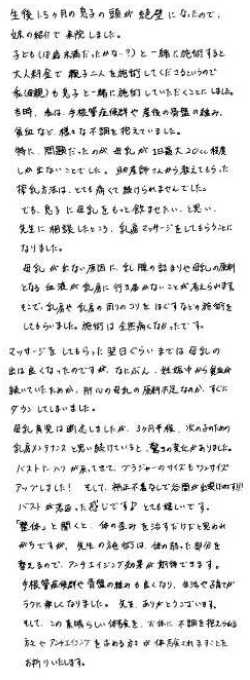 生後1.5ヶ月の息子の頭が絶壁になったので、
妹の紹介で来院しました。
子ども(は歳未満だったかな？)と一緒に施術すると
大人料金で親子二人を施術してくださるというので
私(母親)も息子と一緒に施術していただくことにしました。
当時、私は、手根管症候群や産後の骨盤の歪み、
貧血など、様々な不調を抱えていました。
特に、問題だったのが母乳が1日最大20cc程度
しか出ないことでした。助産師さんから教えてもらった
搾乳方法は、とても痛くて続けられませんでした。
でも、息子に母乳をもっと飲ませたい、と思い、
先生に相談したところ、乳房マッサージをしてもらうことに
なりました。
母乳が出ない原因に、乳腺の詰まりや母乳の原料
となる血液が乳房に行き届かないことが考えられます。
そこで、乳房や乳房の周りのコリをほぐすなどの施術を
してもらいました。施術は全然痛くなかったです。
マッサージをしてもらった翌日ぐらいまでは母乳の
出は良くなったのですが、なにぶん、妊娠中から貧血が
続いていたためか、肝心の母乳の原料不足なのか、すぐに
ダウンしてしまいました。
母乳育児は断念しましたが、3ヶ月半程、次の子のための
乳房メンテナンスと思い続けていると、驚きの変化がありました。
バストにハリが戻ってきて、ブラジャーのサイズもワンサイズ
アップしました！そして、補正下着なしで谷間が出現!!
バストが若返った感じです♪とても嬉しいです。
「整体」と聞くと、体の歪みを治すだけだと思われ
がちですが、先生の施術は、体の弱った部分を
整えるので、アンチエイジング効果が期待できます。
手根管症候群や骨盤の歪みも良くなり、生活や子育てが
ラクに楽しくなりました。先生、ありがとうございます。
そして、この素晴らしい体験を、お体に不調を抱えられる
方々やアンチエイジングを求める方々が体感されますことを
お祈りいたします。